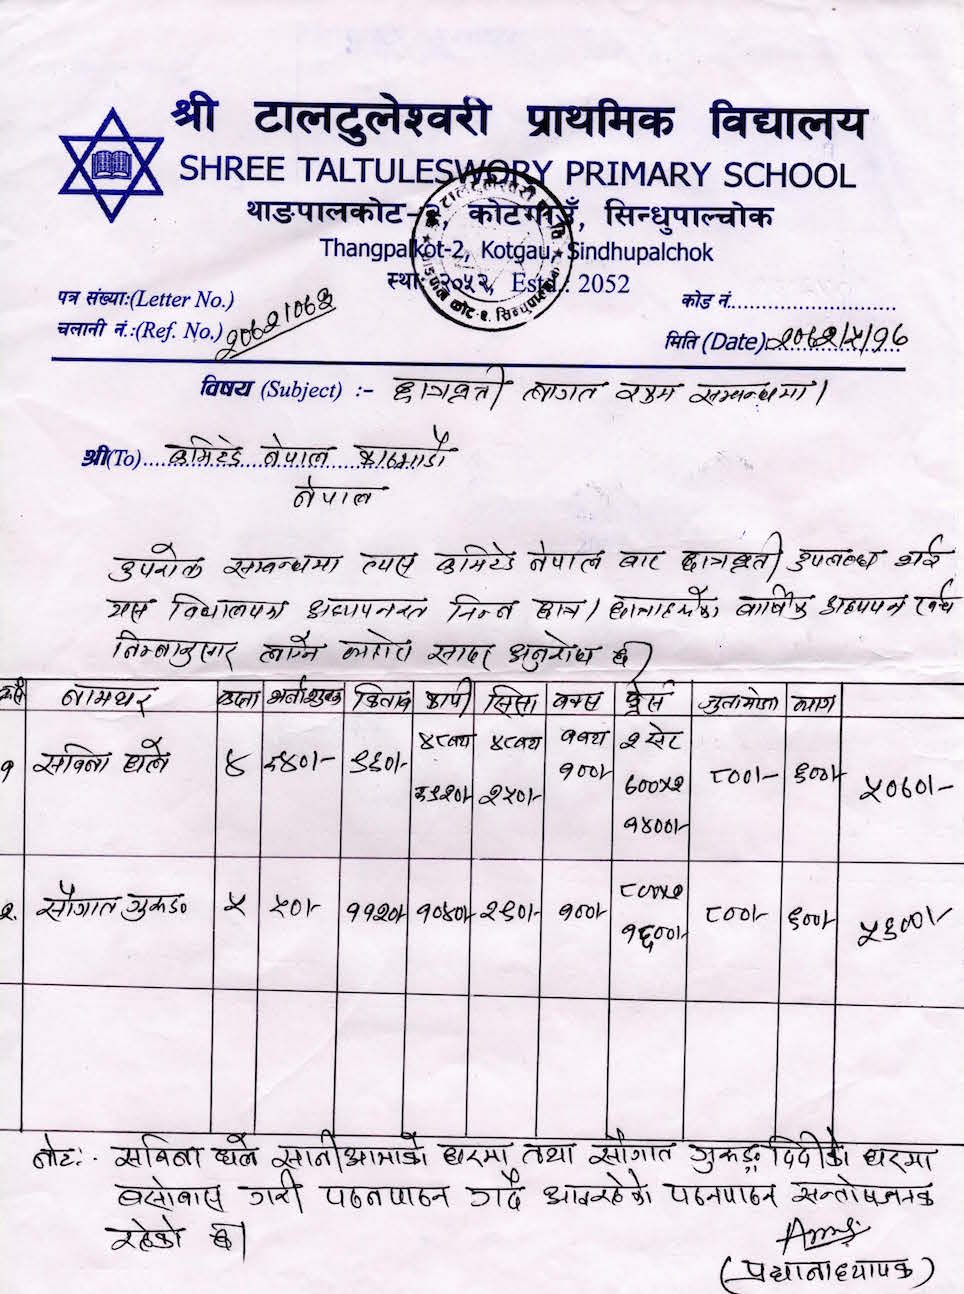 श्री टालटुलेश्वरी प्राथमिक विद्यालय
SHREE TALTULESWORY PRIMARY SCHOOL
थाङपालकोट-२, कोटगाउँ, सिन्धुपाल्चोक
Thangpalkot-2, Kotgau, Sindhupalchok
स्था. २०५२, Estd.: 2052
पत्र संख्याः(Letter No.)
कोड नं.
चलानी नं.:(Ref. No.) २०६२।०६३
मिति (Date) २०६२/५/१६
विषय (Subject) :- छात्रवृत्ती लागत रकम सम्बन्धमा।
श्री(To) कमिटेड नेपाल काठमाडौ
नेपाल
उपरोक्त सम्बन्धमा त्यस कमिटेड नेपाल बाट छात्रवृत्ती उपलब्ध भई
यस विद्यालयमा अध्ययनरत निम्न छात्र। छात्राहरुको वार्षिक अध्ययन खर्च
निम्नानुसार लाग्ने सादर अनुरोध छ।
नामथर कक्षा भर्नाशुल्क किताब कापी सिसा बक्स ड्रेस जुतामोजा
१ सविना घले ४ ५६०।- २५०।- १००।- २ सेट ८००।- ६००।- ५०६०।-
१४००।-
२. सौगात ५ ५०।- ११२०।- १०४०।- २६०।- १००।- ८००x२ ८००।- ६००।- ५६००।-
१६००।-
नोटः- सविना घले सानीआमाको घरमा तथा सौगात दिदीको घरमा
बसोबास गरी पठनपाठन गर्दै पठनपाठन सन्तोषजनक
रहेको छ।
(प्रधानाध्यापक)